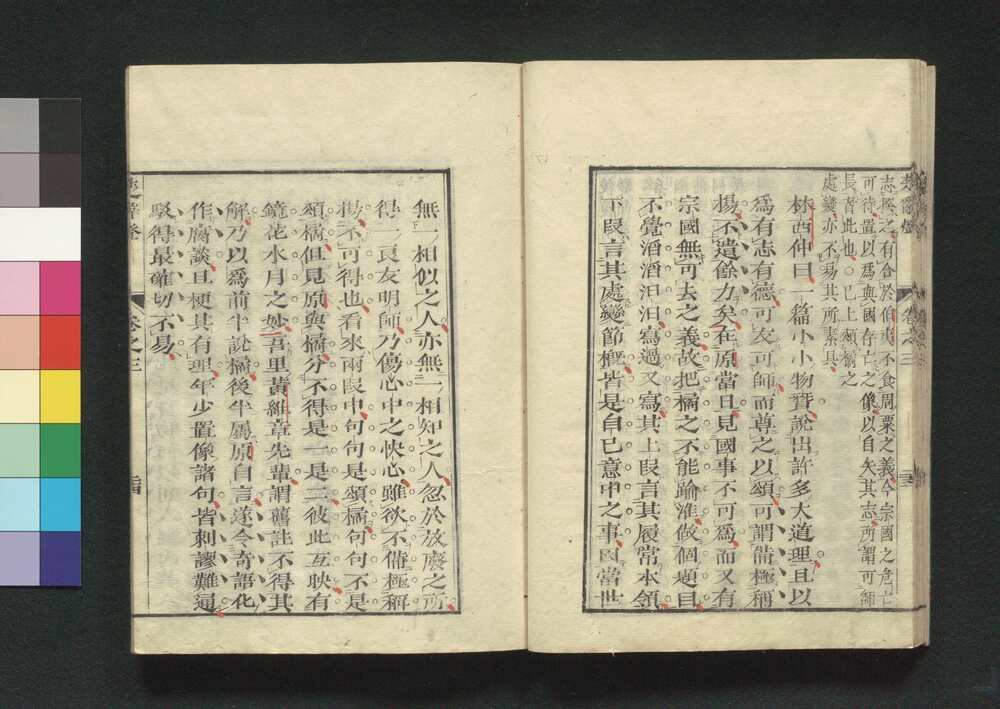 志槩之有合於伯夷不食周粟之義今宗國之危亡
可待置以為與國存亡之像以自矢其志所謂可師
長者此也○已上頌橘之
處變亦不易其所素具
林西仲曰一篇小小物贊說出許多大道理且以
為有志有德可友可師而尊之以頌可謂備極稱
揚不遺餘力矣在原當日見國事不可為而又有
宗國無可去之義故把橘之不能踰淮做個題目
不覺滔滔汩汩寫過又寫其上段言其履常本領
下段言其處變節槩皆是自已意中之事因當世
無一相似之人亦無一相知之人忽於放廢之所
得一良友明師乃傷心中之快心雖欲不備極稱
揚不可得也看來兩段中句句是頌橘句句不是
頌橘但見原與橘分不得是一是二彼此互映有
鏡花水月之妙吾里黃維章先輩謂舊註不得其
解乃以為前半說橘後半屬原自言遂令奇語化
作腐談且梗其有理年少置像諸句皆刺謬難通
駁得最確切不易
卷之三